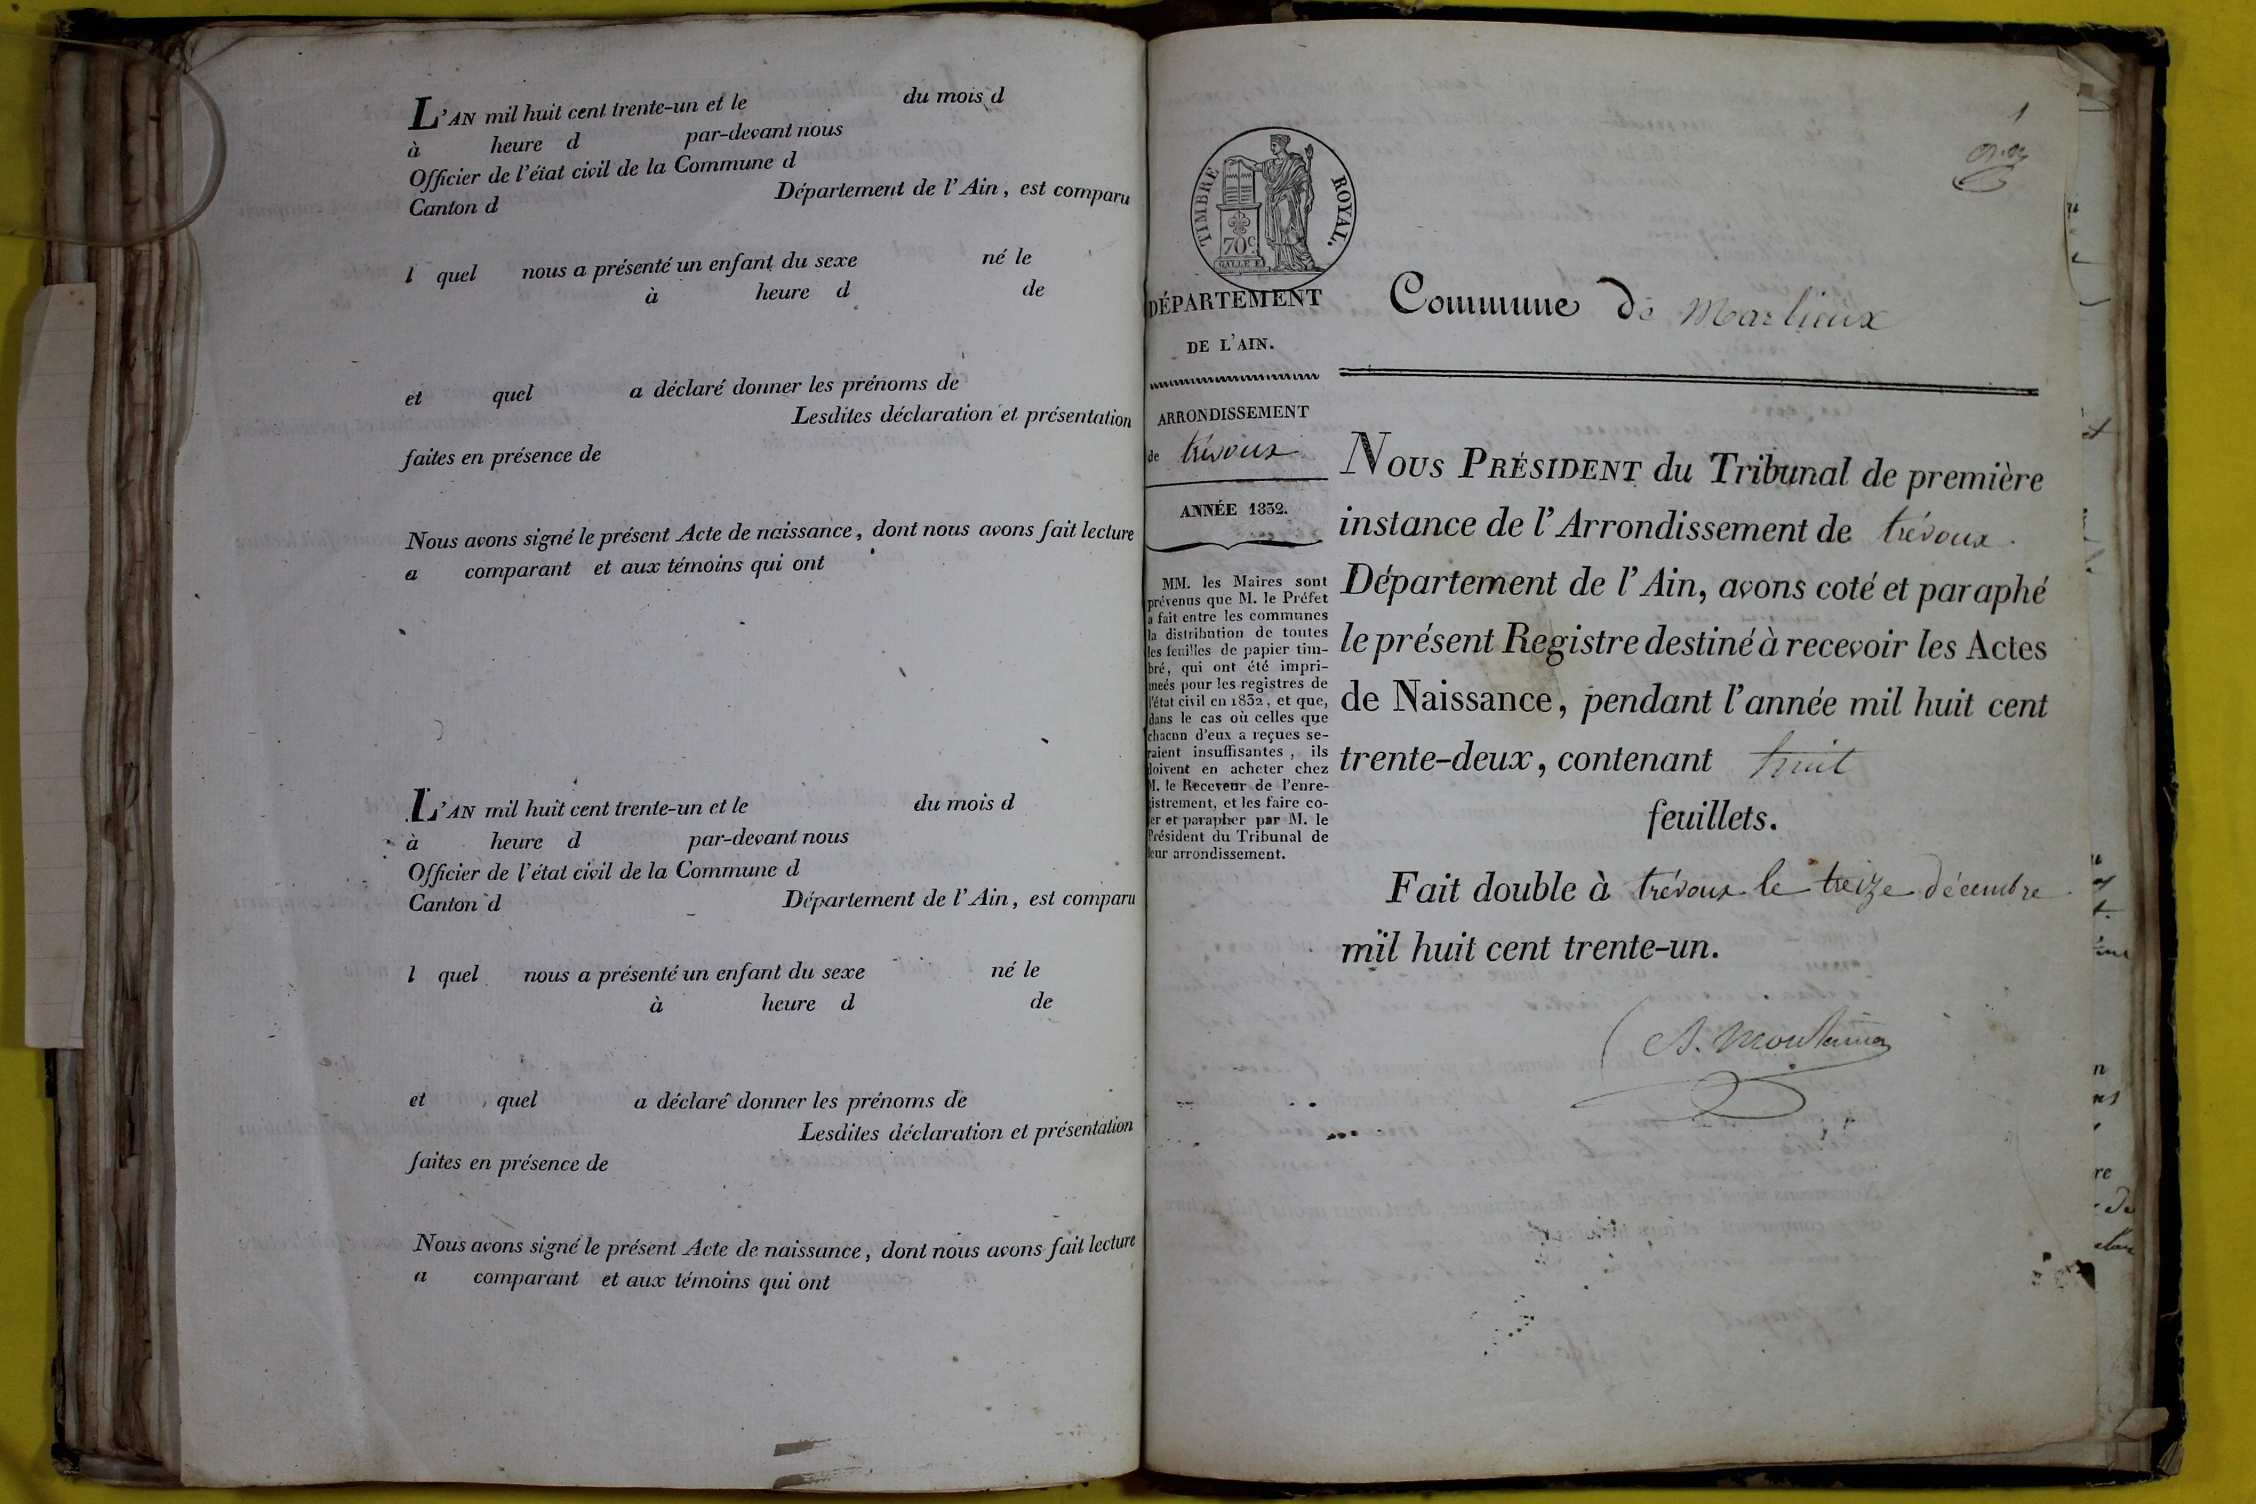 L'AN mil huit cent trente-un et le du mois d
à heure d par-devant nous
Officier de l'état civil de la Commune d
Canton d Département de l'Ain, est comparu
l quel nous a présenté un enfant du sexe né le
à heure d de
et quel a déclaré donner les prénoms de
Lesdites déclaration et présentation
faites en présence de
Nous avons signé le présent Acte de naissance, dont nous avons fait lecture
a comparant et aux témoins qui ont
L'AN mil huit cent trente-un et le du mois d
à heure d par-devant nous
Officier de l'état civil de la Commune d
Canton d Département de l'Ain, est comparu
l quel nous a présenté un enfant du sexe né le
à heure d de
et quel a déclaré donner les prénoms de
Lesdites déclaration et présentation
faites en présence de
Nous avons signé le présent Acte de naissance, dont nous avons fait lecture
a comparant et aux témoins qui ont
1
TIMBRE ROYAL.
70c
DÉPARTEMENT
DE L'AIN.
ARRONDISSEMENT
de trévoux
ANNÉE 1832.
MM. les Maires sont
prévenus que M. le Préfet
a fait entre les communes
la distribution de toutes
les feuilles de papier tim-
bré, qui ont été impri-
meés pour les registres de
l'état civil en 1832, et que,
dans le cas où celles que
chacun d'eux a reçues se-
raient insuffisantes, ils
doivent en acheter chez
M. le Receveur de l'enre-
gistrement, et les faire co-
ter et parapher par M. le
Président du Tribunal de
leur arrondissement.
Commune de Marlieux
NOUS PRÉSIDENT du Tribunal de première
instance de l'Arrondissement de trévoux.
Département de l'Ain, avons coté et paraphé
le présent Registre destiné à recevoir les Actes
de Naissance, pendant l'année mil huit cent
trente-deux, contenant huit
feuillets.
Fait double à trévoux le treize décembre
mil huit cent trente-un.